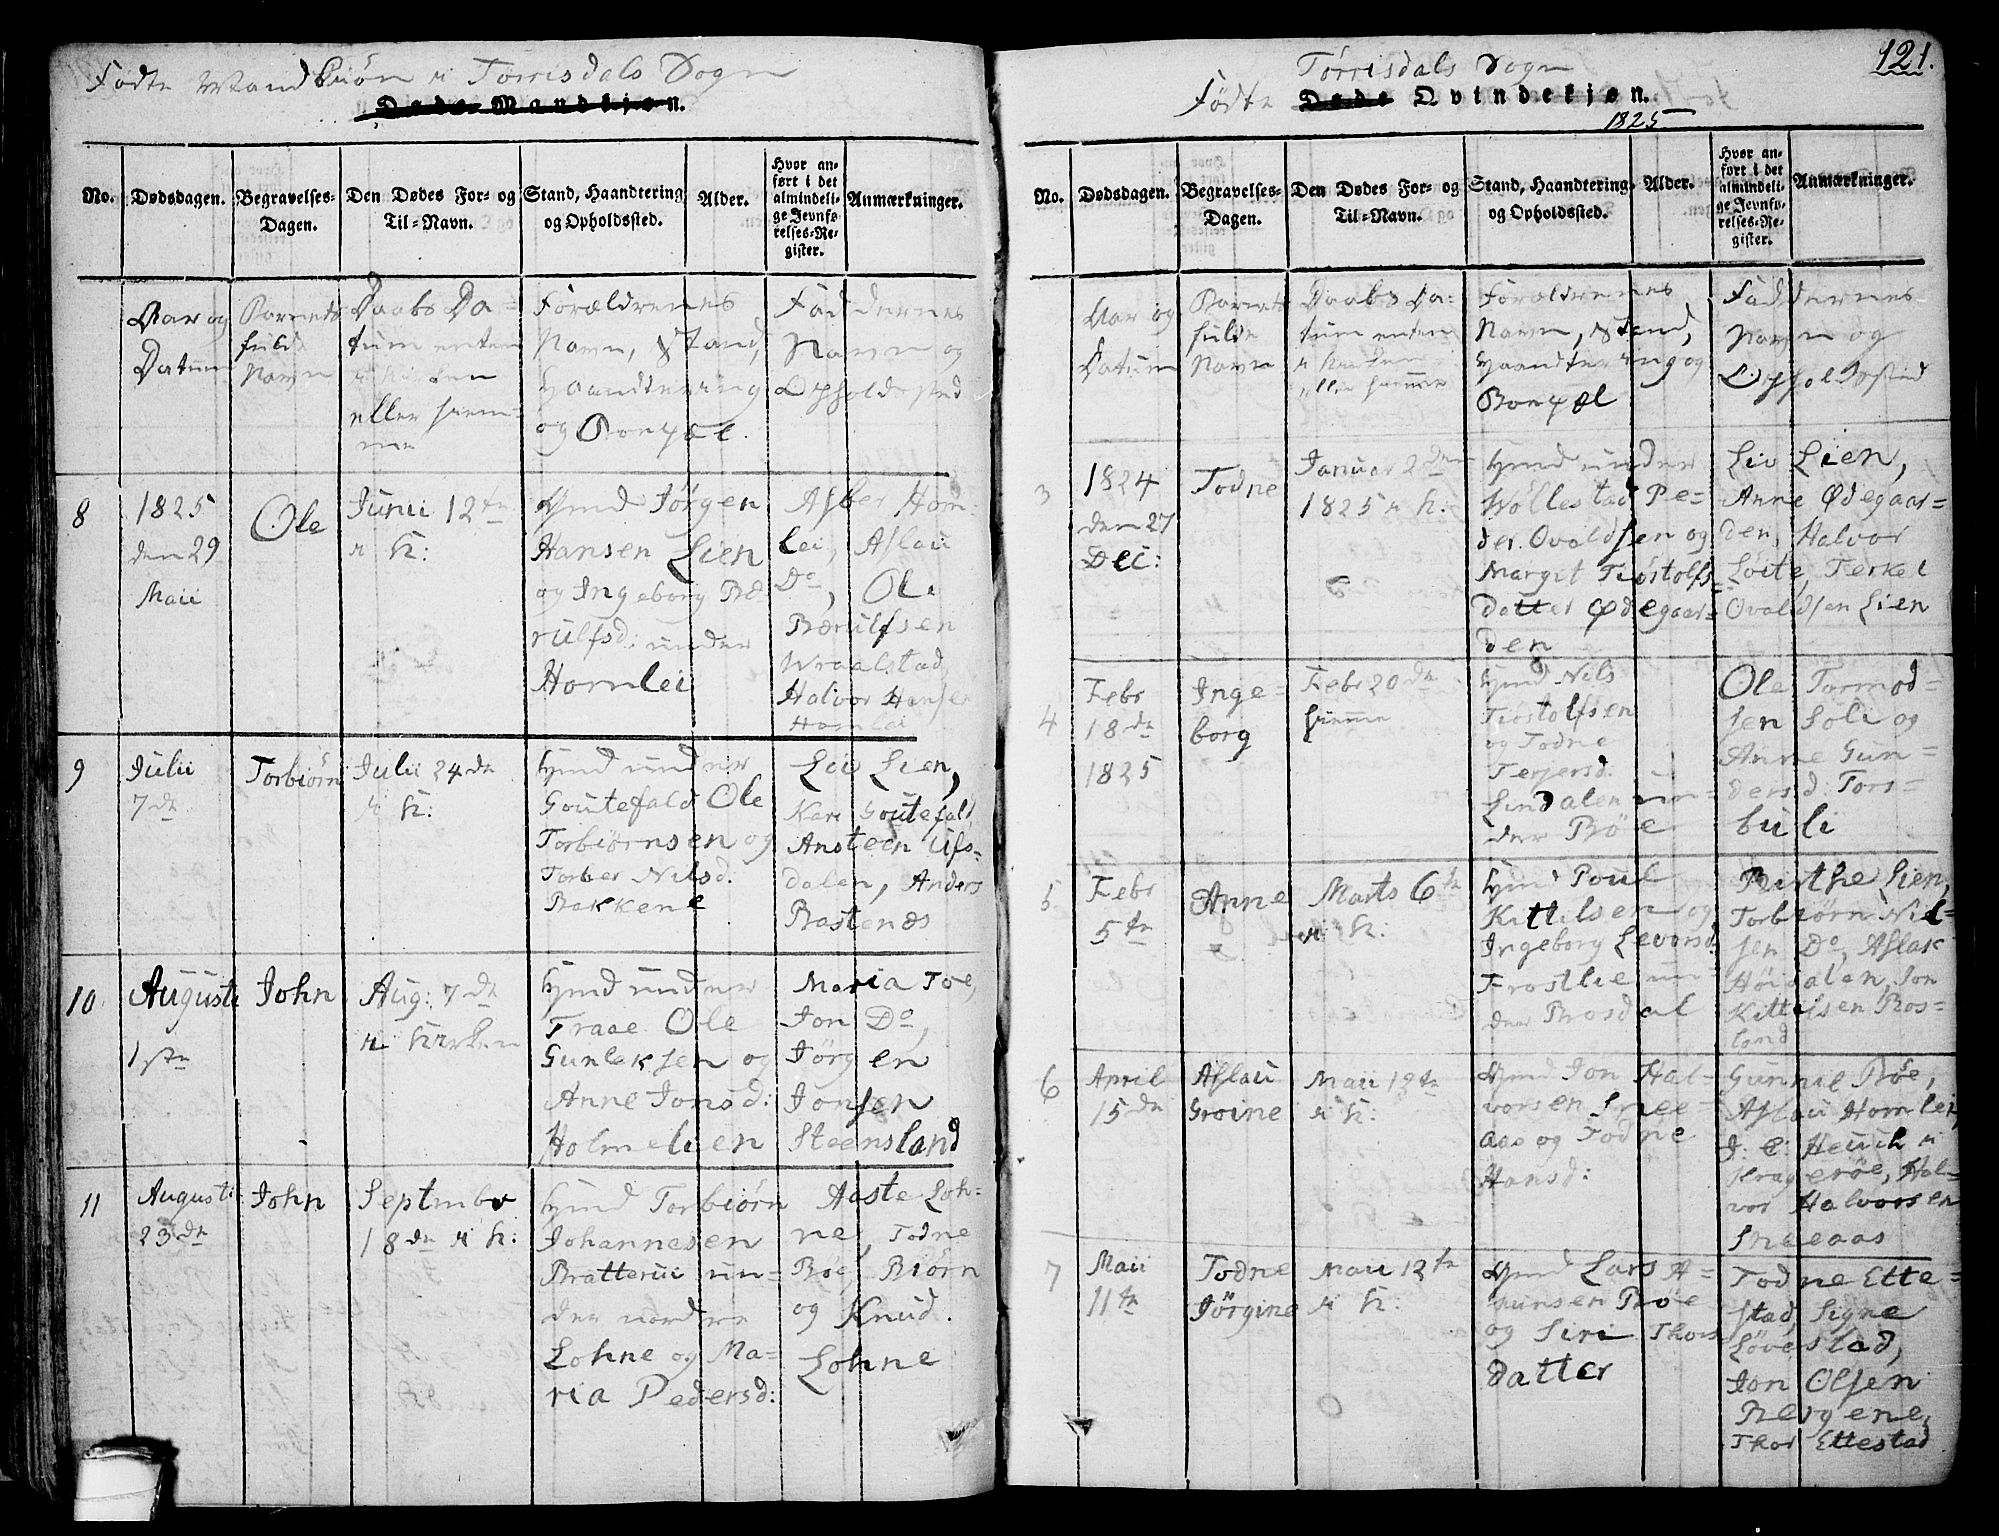 Fødte Mandkiøn i Tørrisdals Sogn
Døde Mandkjøn.
No.
Dødsdagen.
Begravelses-
Dagen.
Den Dødes For- og
Til-Navn.
Stand, Haandtering
og Opholdssted.
Alder.
Hvor an-
ført i det
almindeli-
ge Jevnfø-
relses-Re-
gister.
Anmærkninger.
Aar og
Datum
Barnets
fulde
Navn
Daabs Da-
tum enten
i Kirken
eller hiem-
me
Forældrenes
Navn, Stand,
Haandtering
og Bopæl.
Faddernes
Navn og
Opholdssted
8
1825
den 29
Maii
Ole
Junii 12te
i K:
Hmd Jørgen
Hansen Lien
og Ingeborg Bæ
rulfsd: under
Homlei
Asber Hom-
lei, Aslau
Do, Ole
Bærulfsen
Wraalstad
Halvor Hansen
Homlei
9
Julii
7de
Torbiørn
Julii 24de
i K:
Hmd under
Goutefald Ole
Torbiørnsen og
Torber Nilsd.
Bakkene
Liv Lien,
Kari Goutefald,
Ansteen Ufs-
dalen, Anders
Bastenæs
10
Augusti
1ste
John
Aug: 7de
i Kirken
Hmd under
Traae Ole
Gunleksen og
Anne Jonsd:
Holmelien
Maria Toe,
Jon Do,
Jørgen
Jonsen
Steensland
11
Augusti
23de
John
Septmbr
18de i K:
Hmd Torbiørn
Johannesen
Bratterui un-
der nordre
Lohne og Ma-
ria Pedersd:
Aaste Loh-
ne, Todne
Bøe, Biørn
og Knud
Lohne
121.
Tørrisdals Sogn
Fødte Døde Qvindekjøn.
1825
No.
Dødsdagen.
Begravelses-
Dagen.
Den Dødes For- og
Til-Navn.
Stand, Haandtering
og Opholdssted.
Alder.
Hvor an-
ført i det
almindeli-
ge Jevnfø-
relses-Re-
gister.
Anmærkninger.
Aar og
Datum
Barnets
fulde
Navn
Daabs Da-
tum enten
i Kirken
eller hiemme
Forældrenes
Navn, Stand,
Haandtering og
Bopæl
Faddernes
Navn og
Opholdssted
3
1824
den 27
Dec:
Todne
Januar 2den
1825 i K:
Hmd under
Wøllestad Pe-
der Ovaldsen og
Margit Tiøstolfs
datter Ødegaar-
den
Liv Lien,
Anne Ødegaar-
den, Halvor
Løite, Terkel
Ovaldsen Lien
4
Febr
18de
1825
Inge-
borg
Febr 20de
hiemme
Hmd Nils
Tiøstolfsen
og Todne
Terjersd.
Lindalen un-
der Bøe
Ole Tormod-
sen Soli og
Anne Gun-
dersd: Tors-
buli
5
Febr
5te
Anne
Marts 6te
i K:
Hmd Poul
Kittilsen og
Ingeborg Levorsd.
Frostlie un-
der Bosdal
Birthe Lien,
Torbiørn Nil-
sen Do, Aslak
Høidalen, Jon
Kittilsen Ros-
land
6
April
15de
Aslau
Groine
Maii 12te
i K:
Hmd Jon Hal-
vorsen Snee-
aas og Todne
Hansd:
Gunnil Bøe,
Aslau Homlei,
J: C: Heuch i
Kragerøe, Hal-
vor Halvorsen
Sneeaas
7
Maii
11te
Todne
Jørgine
Maii 12te
i K:
Hmd Lars A-
munsen Bøe
og Siri Thors
datter
Todne Ette-
stad, Signe
Løvestad,
Jon Olsen
Bergene,
Thor Ettestad